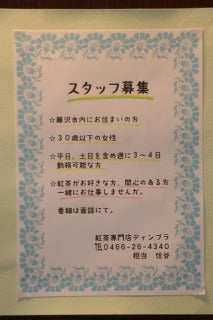 スタッフ募集
☆藤沢市内にお住まいの方
☆30歳以下の女性
☆平日、土日を含め週に3~4日
勤務可能な方
☆紅茶がお好きな方、関心のある方
一緒にお仕事しませんか。
委細は面談にて。
紅茶専門店ディンブラ
TEL0466-26-4340
担当 佳谷